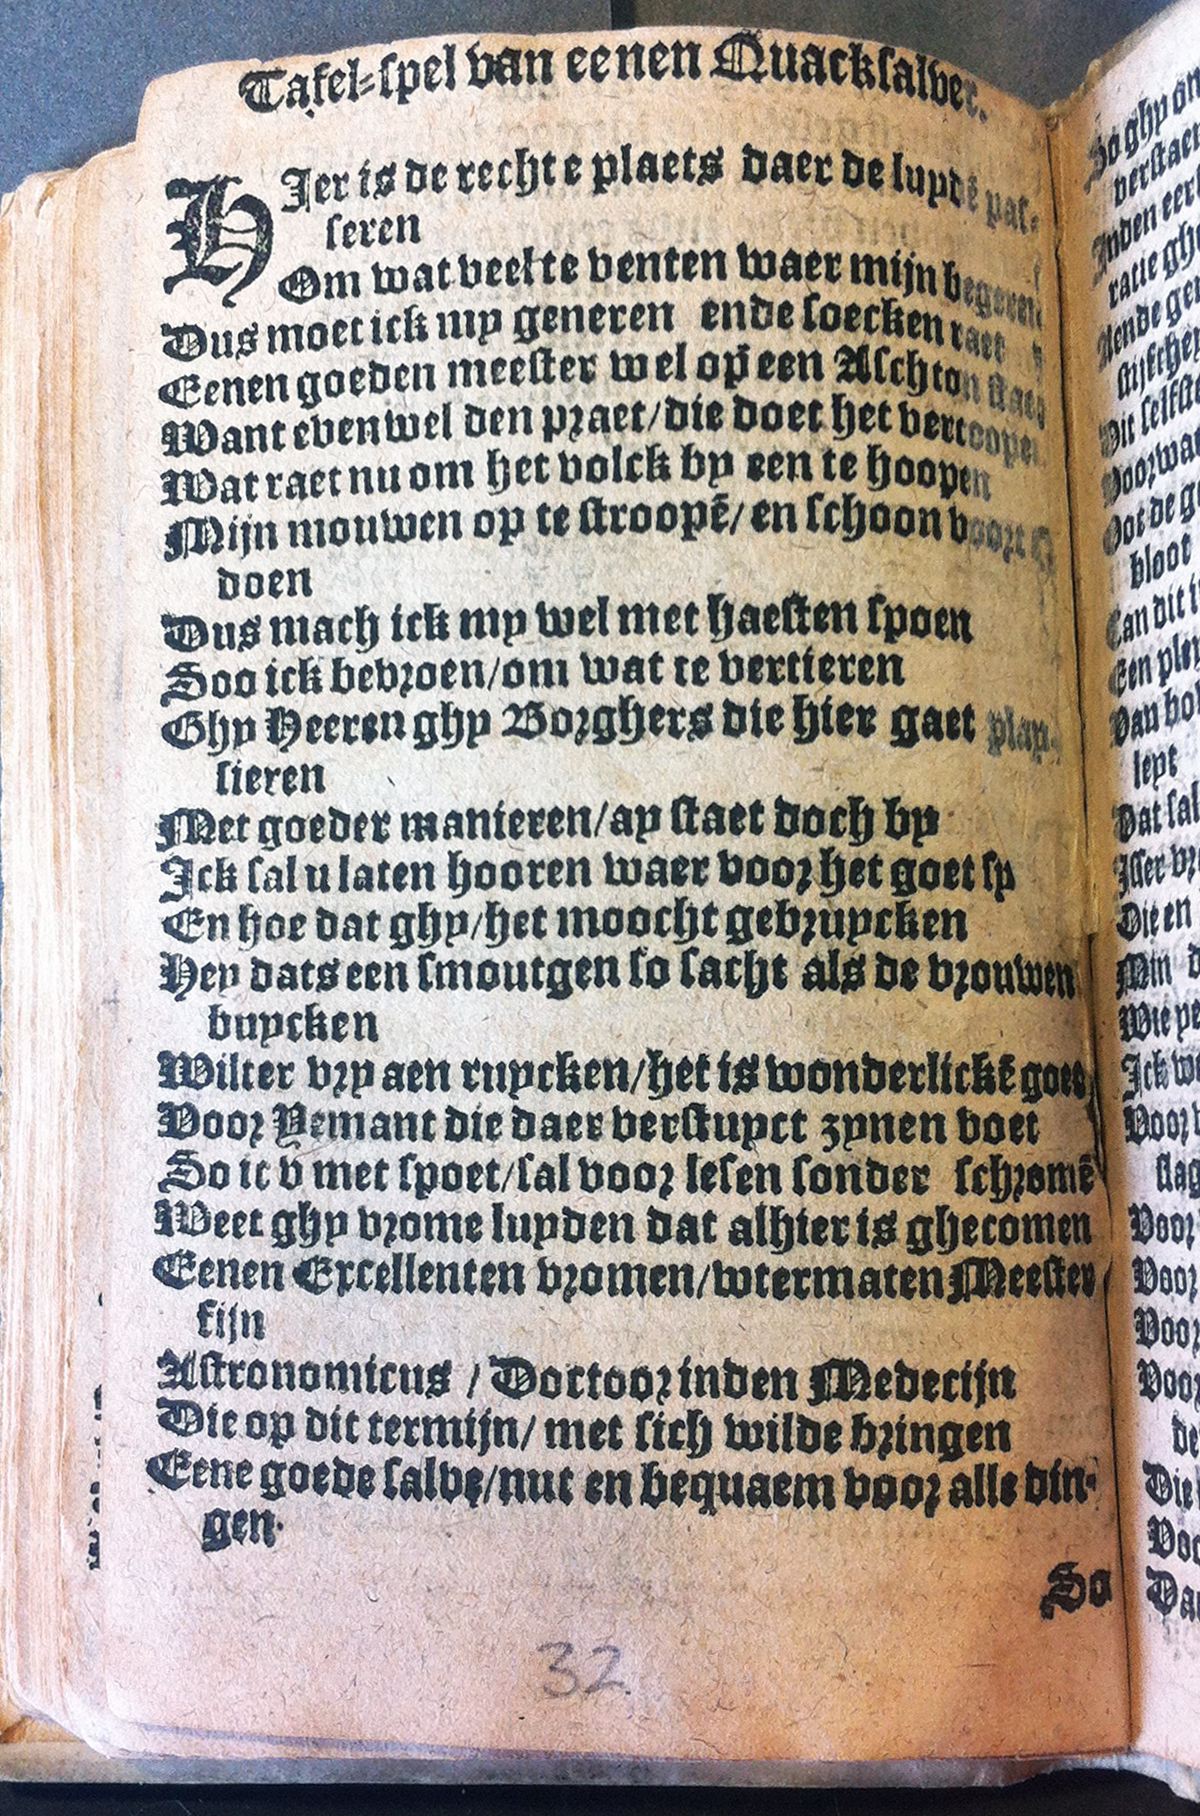 Tafel-spel van eenen Quacksalver.
HIer is de rechte plaets daer de luydē pas-
seren
Om wat veel te venten waer mijn begeren
Dus moet ick my generen ende soecken raet
Eenen goeden meester wel op een Aschton staet
Want evenwel den praet/die doet het vercoopen
Wat raet nu om het volck by een te hoopen
Mijn mouwen op te stroopē/en schoon voort
doen
Dus mach ick my wel met haesten spoen
Soo ick bevroen/om wat te vertieren
Ghy Heeren ghy Borghers die hier gaet play-
sieren
Met goeder manieren/ay staet doch by
Ick sal u laten hooren waer voor het goet sy
En hoe dat ghy/het moocht gebruycken
Hey dats een smoutgen so sacht als de vrouwen
buycken
Wilter vry aen ruycken/het is wonderlickē goet
Voor Yemant die daer verstuyct zynen voet
So ic v met spoet/sal voor lesen sonder schromē
Weet ghy vrome luyden dat alhier is ghecomen
Eenen Excellenten vromen/wtermaten Meester
fijn
Astronomicus / Doctoor inden Medecijn
Die op dit termijn/ met sich wilde bringen
Eene goede salve/nut en bequaem voor alle din-
gen.
So
32
So ghy
Inden
ratie
Dit selfste
Voorwaer
bloot
Can dit
Een
lept
Dat sal
Die en
Min
Wie
Ick
Voor
Voor
Voor
Voor
Voor
de
Die